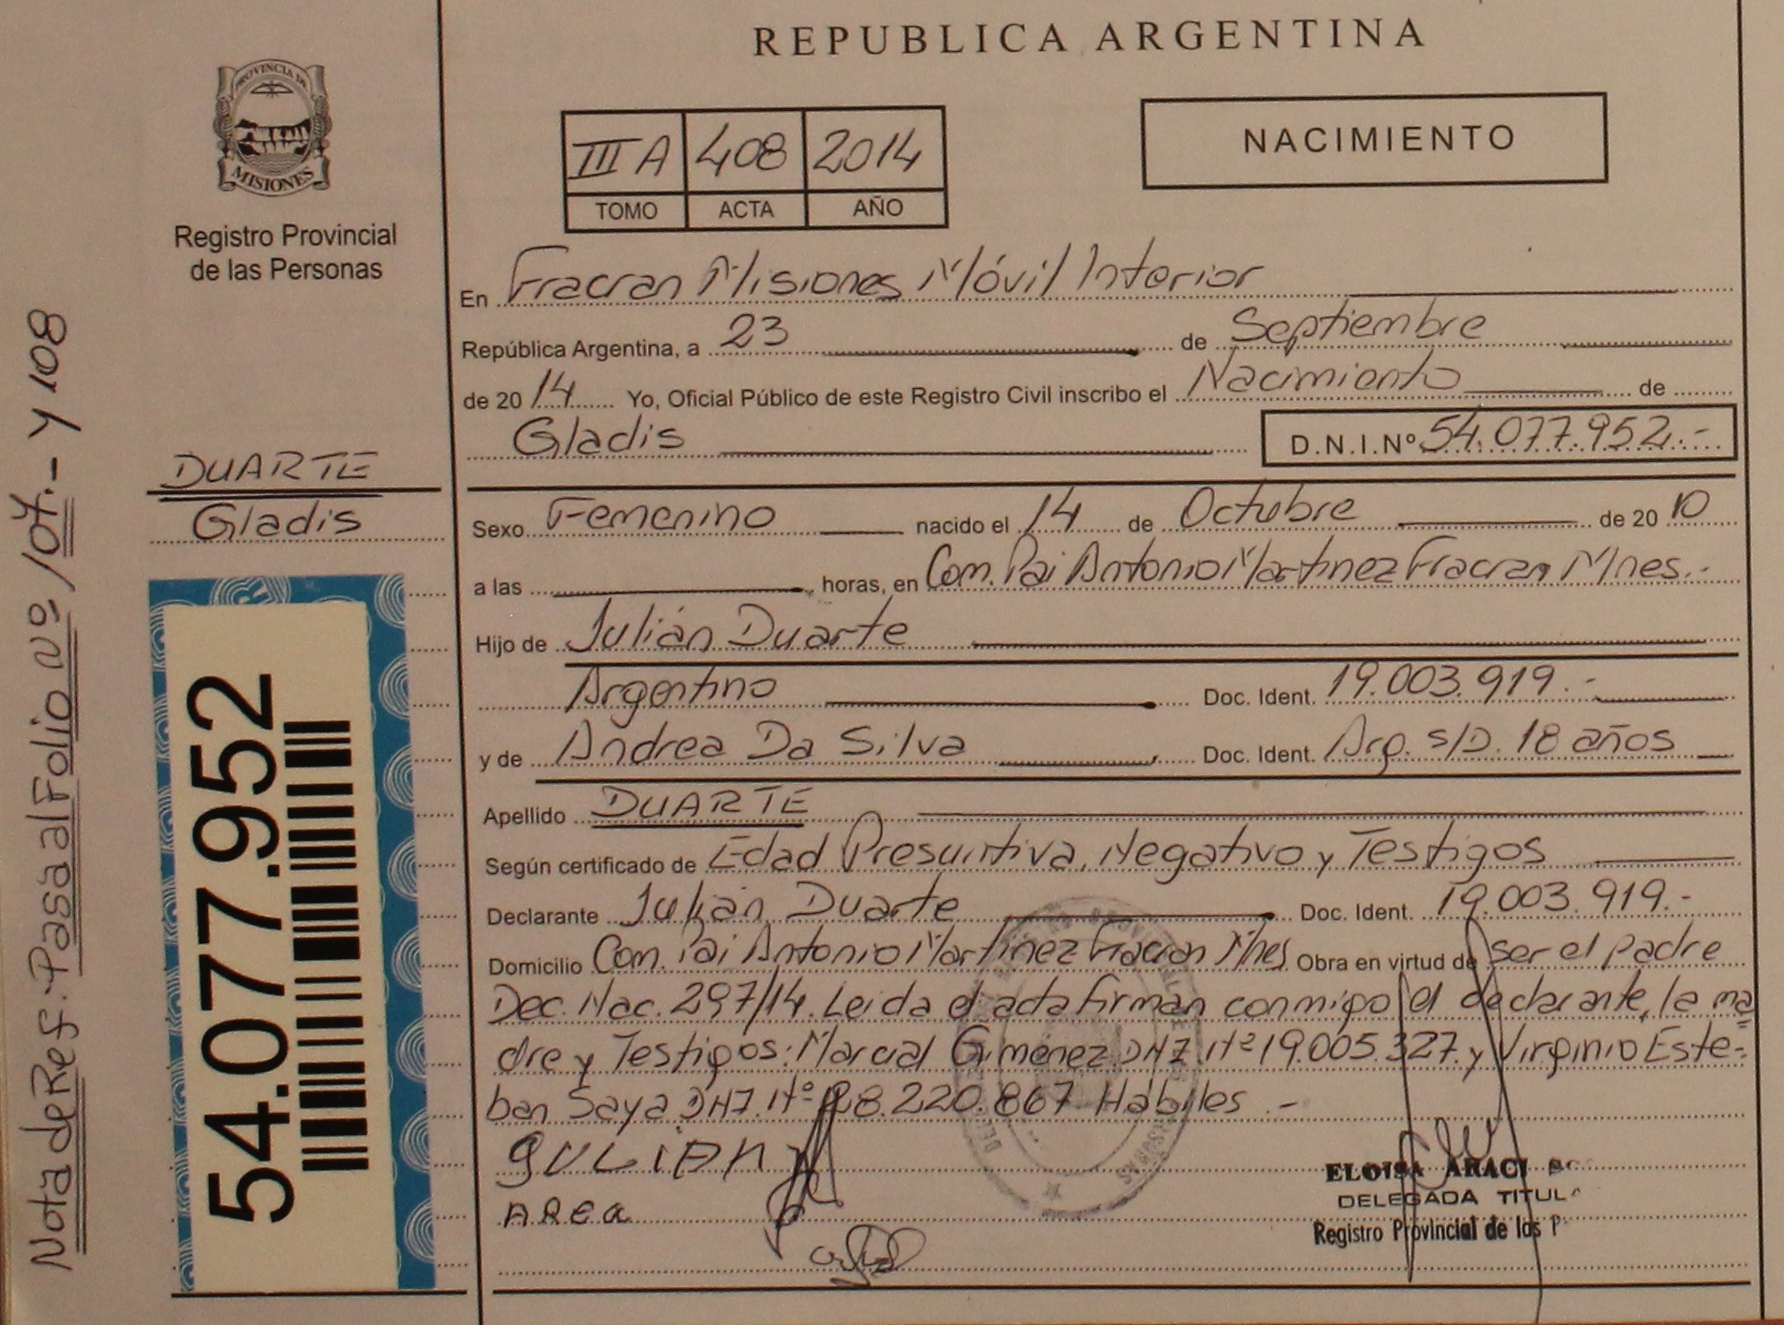 REPUBLICA ARGENTINA
PROVINCIA DE
MISIONES
Registro Provincial
de las Personas
III A 408 2014
TOMO ACTA AÑO
NACIMIENTO
En Fracran Misiones Móvil Interior
República Argentina, a 23 de Septiembre
de 2014 Yo, Oficial Público de este Registro Civil inscribo el Nacimiento de
Gladis D.N.I.Nº 54.077.952.-
DUARTE
Gladis
Sexo Femenino nacido el 14 de Octubre de 2010
a las horas, en Com. Pai Antonio Martinez Fracran Mnes.-
Hijo de Julián Duarte
Argentino Doc. Ident. 19.003.919.-
y de Andrea Da Silva Doc. Ident. Arg. s/D. 18 años
Apellido DUARTE
Según certificado de Edad Presuntiva, Negativo y Testigos
Declarante Julián Duarte Doc. Ident. 19.003.919.-
Domicilio Com. Pai Antonio Martinez Fracran Mnes Obra en virtud de ser el padre
Dec. Nac. 297/14. Leida el acta firman conmigo el declarante, la ma
dre y Testigos: Marcial Giménez DNI. Nº 19.005.327. y Virginio Este-
ban Saya DNI. Nº 28.220.867. Hábiles .-
JULIAN
AREA
ELOISA ARACI
DELEGADA TITUL
Registro Provincial de las P
54.077.952
Nota de Ref: Pasa al Folio Nº 107.- y 108